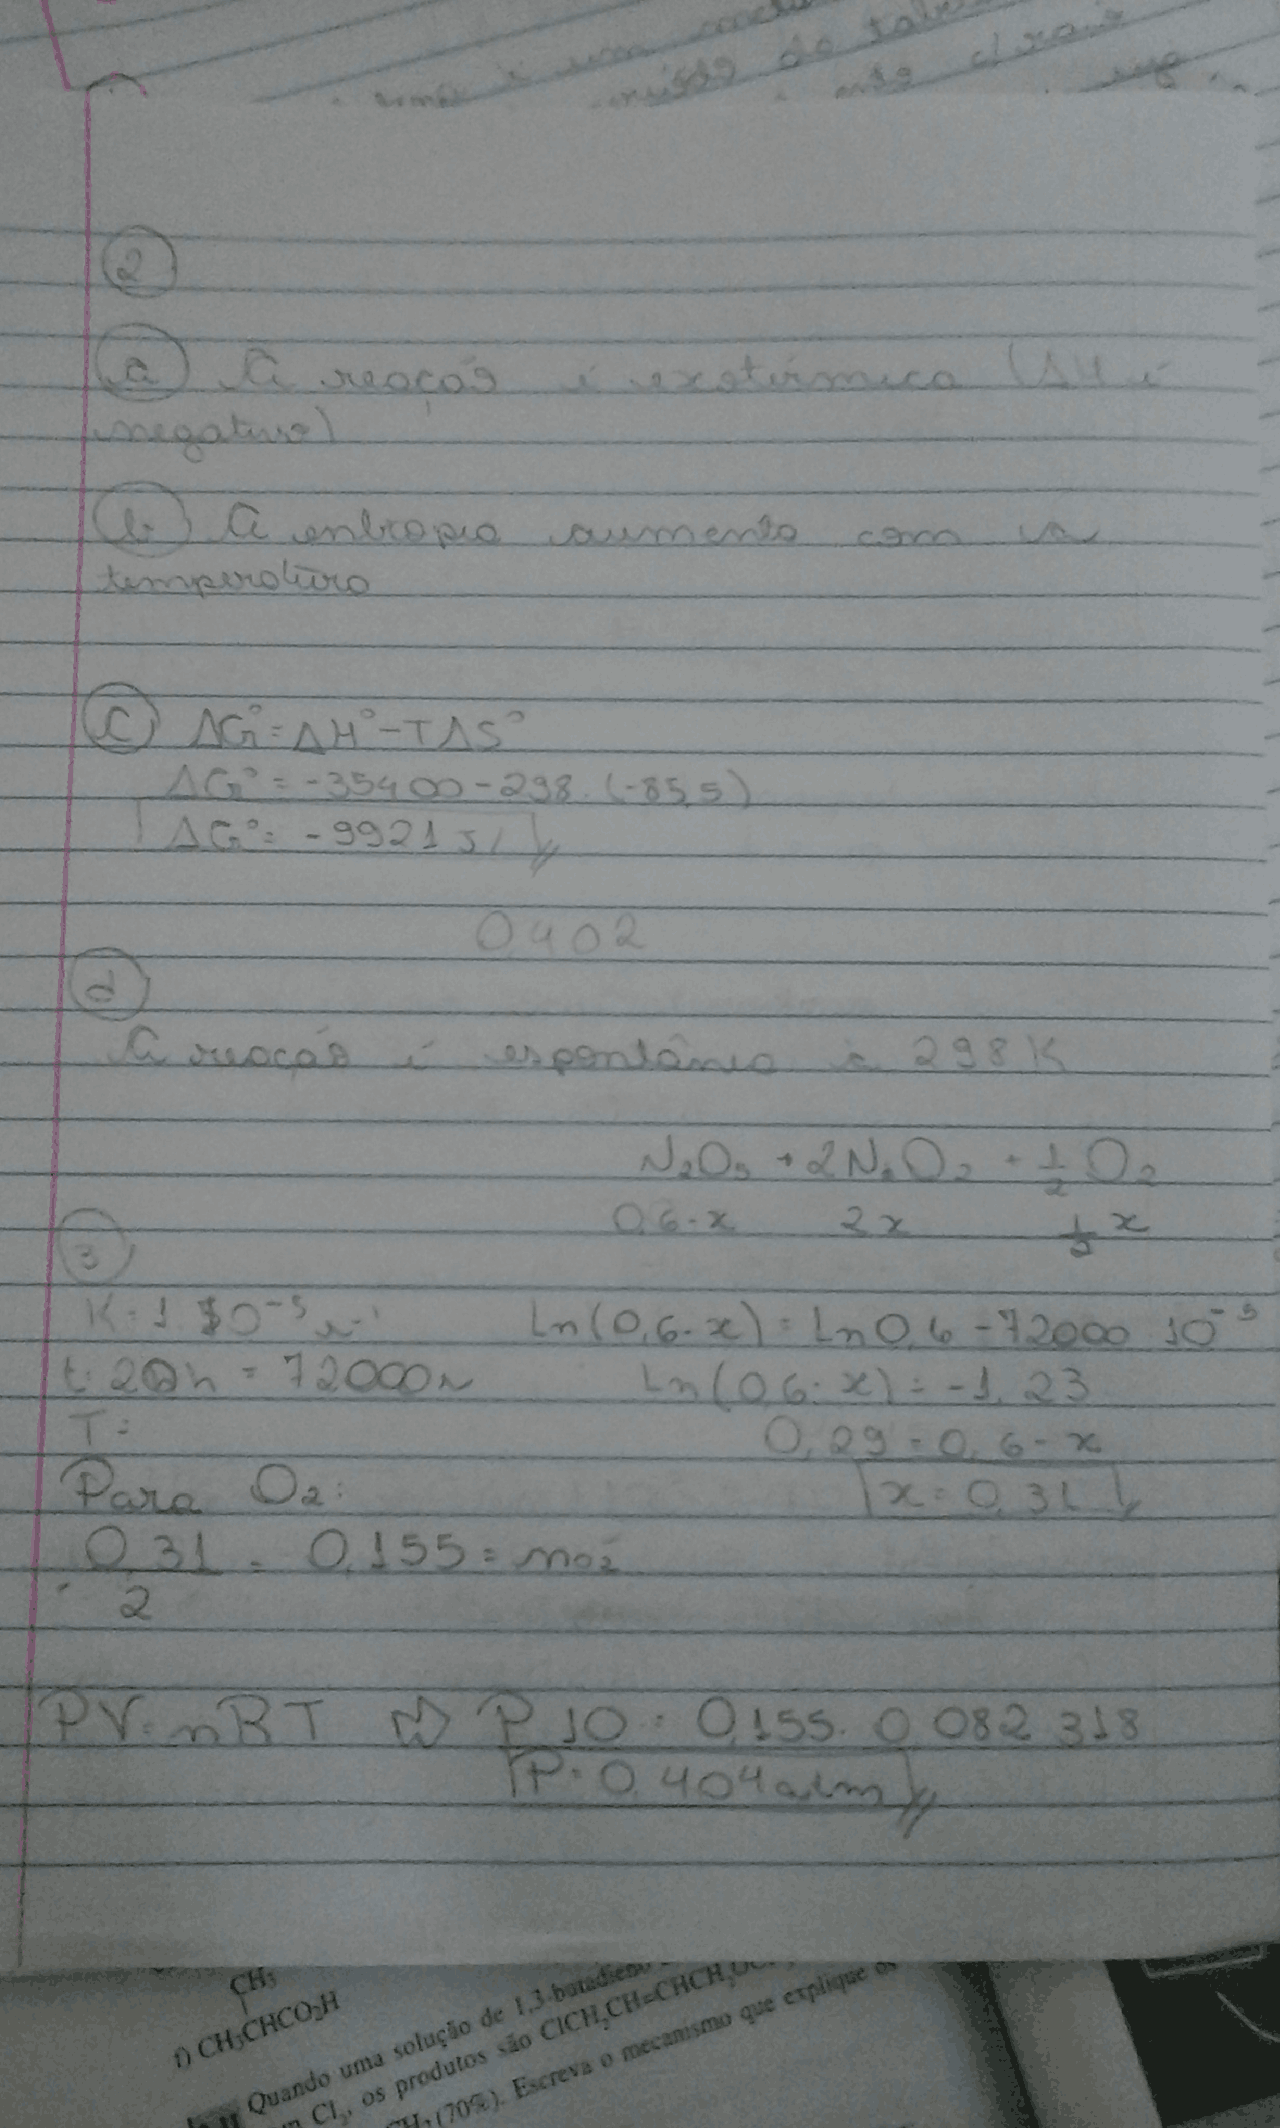 2
a) A reação é exotérmica (ΔH é
negativo)
b) A entropia aumenta com a
temperatura
c) ΔG° = ΔH° - TΔS°
ΔG° = -35400 - 298 . (-85,5)
ΔG° = -9921 J/
0,402
d
A reação é espontânea à 298K
N₂O₅ + 2N₂O₂ + 1/2 O₂
0,6-x 2x 1/2 x
3
K = 1.10⁻⁵ s⁻¹ Ln(0,6-x) = Ln0,6 - 72000 10⁻⁵
t: 20h = 72000s Ln(0,6-x) = -1,23
T = 0,29 = 0,6-x
Para O₂: x = 0,31
0,31/2 = 0,155 = no₂
PV = nRT ⇨ P.10 = 0,155. 0,082.318
P = 0,404 atm
CH₃
f) CH₃CHCO₂H
Quando uma solução de 1,3-butadieno
Cl₂, os produtos são ClCH₂CH=CHCH₂OC
(70%). Escreva o mecanismo que explique os